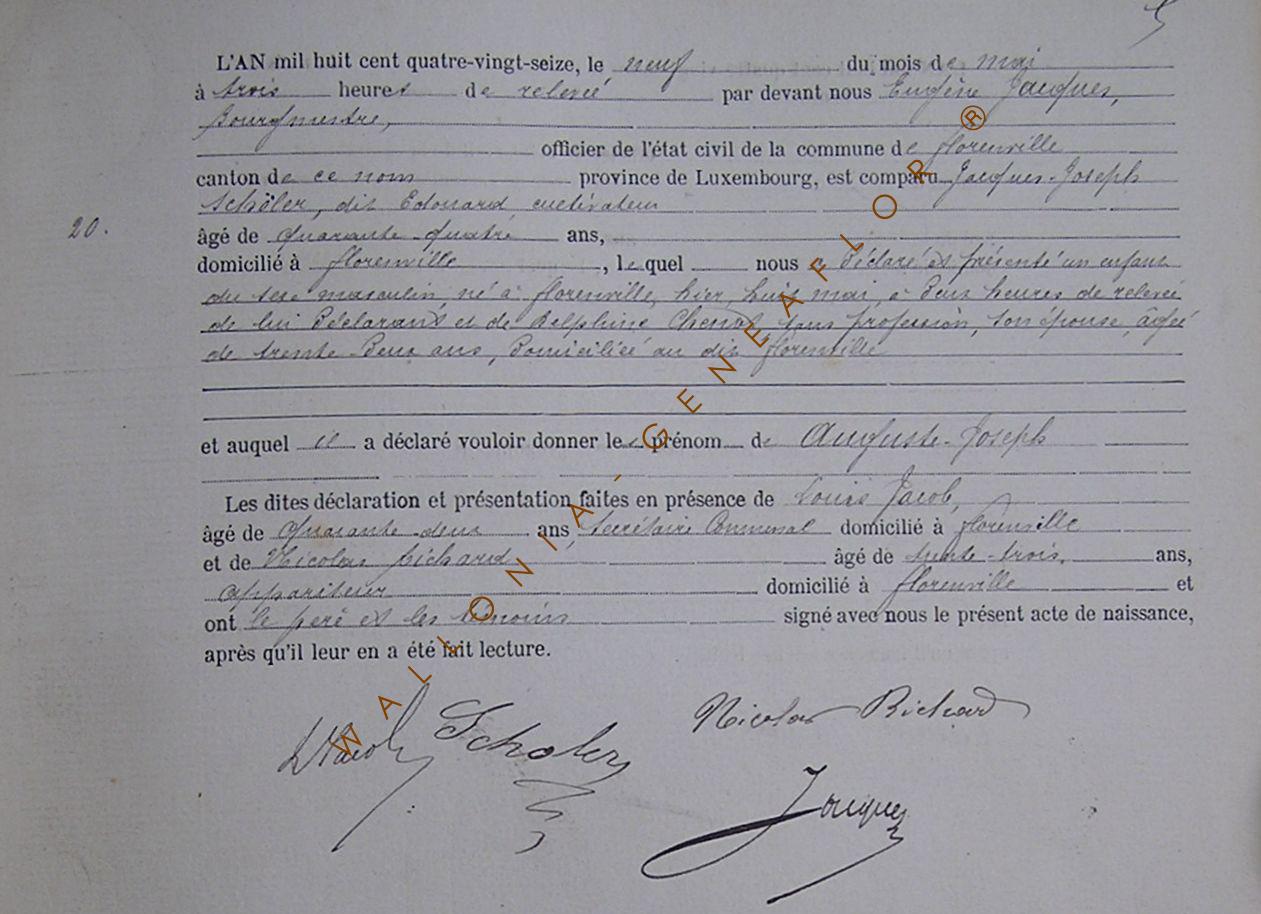 L'AN mil huit cent quatre-vingt-seize, le neuf du mois de mai
à trois heures de relevée par devant nous Eugène Jacques,
Bourgmestre,
officier de l'état civil de la commune de florenville
canton de ce nom province de Luxembourg, est comparu Jacques-Joseph
Schöler, dit Edouard, cultivateur
20.
âgé de quarante-quatre ans,
domicilié à florenville, lequel nous a déclaré et présenté un enfant
du sexe masculin, né à florenville, hier, huit mai, à deux heures de relevée
de lui déclarant et de Delphine sans profession, son épouse, âgée
de trente-deux ans, domiciliée au dit florenville
et auquel il a déclaré vouloir donner les prénom de Auguste-Joseph
Les dites déclaration et présentation faites en présence de Louis Jacob,
âgé de quarante-deux ans, secrétaire Communal domicilié à florenville
et de Nicolas Richard âgé de trente-trois, ans,
appariteur domicilié à florenville et
ont le père et les témoins signé avec nous le présent acte de naissance,
après qu'il leur en a été fait lecture.
LJacob Scholer Nicolas Richard
Jacques
WALLONIA-GENEAFLOR ®